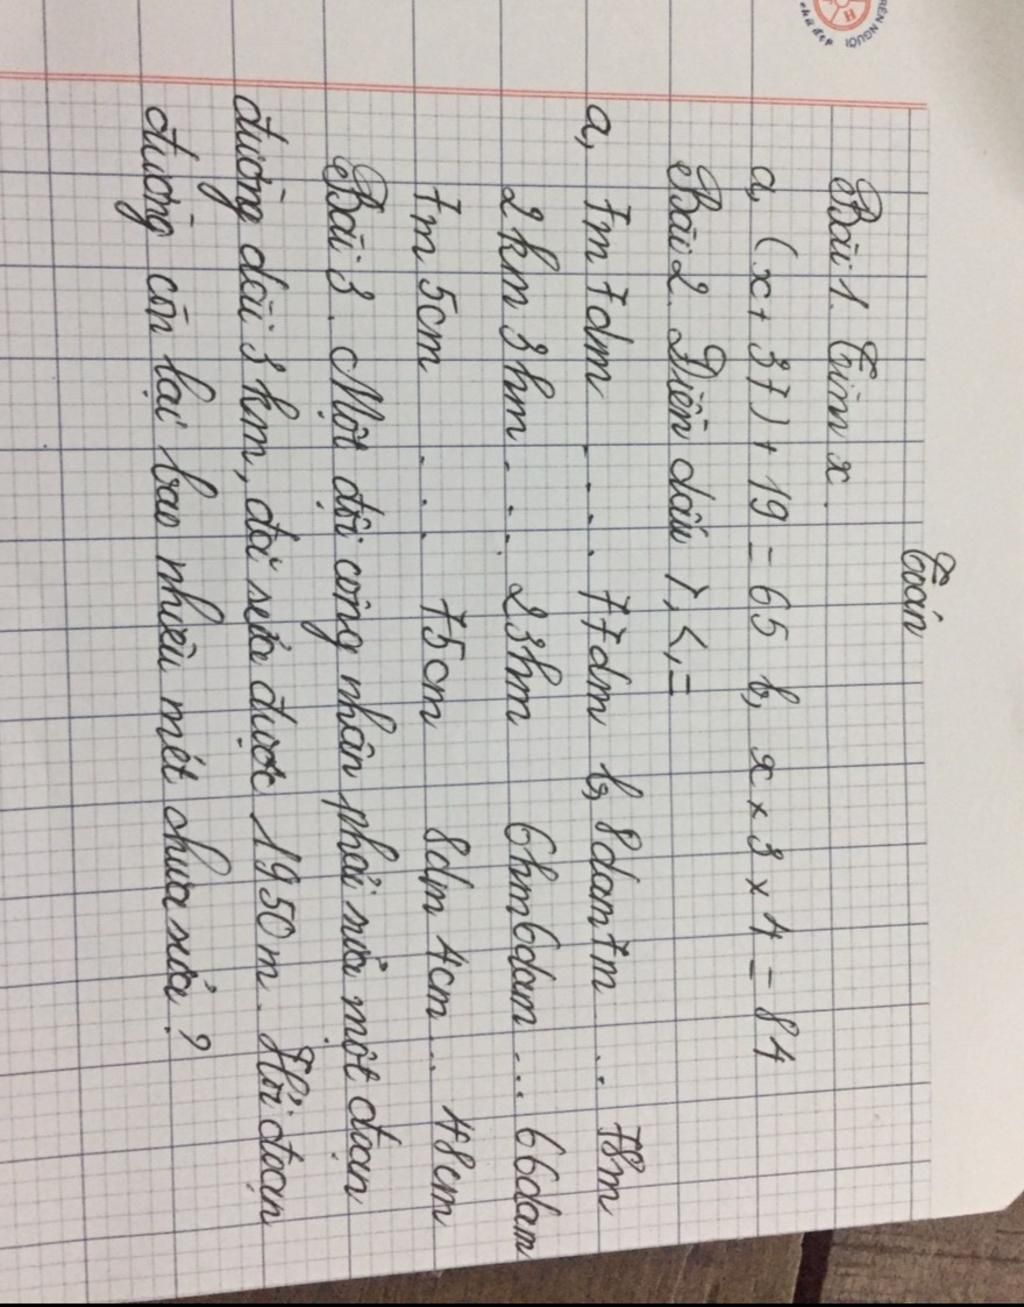 Toán
Bài 1. Tìm x.
a, (x + 37) + 19 = 65 b, x x 3 x 4 = 84
Bài 2. Điền dấu >, <, =
a, 7m 7dm . . . . 77dm b, 8dam7m . . 78m
2km 3hm . . . 23hm 6hm6dam ... 66dam
7m 5cm . . . 75cm 8dm 4cm ... 48cm
Bài 3. Một đội công nhân phải sửa một đoạn
đường dài 3 km, đã sửa được 1950m. Hỏi đoạn
đường còn lại bao nhiêu mét chưa sửa?